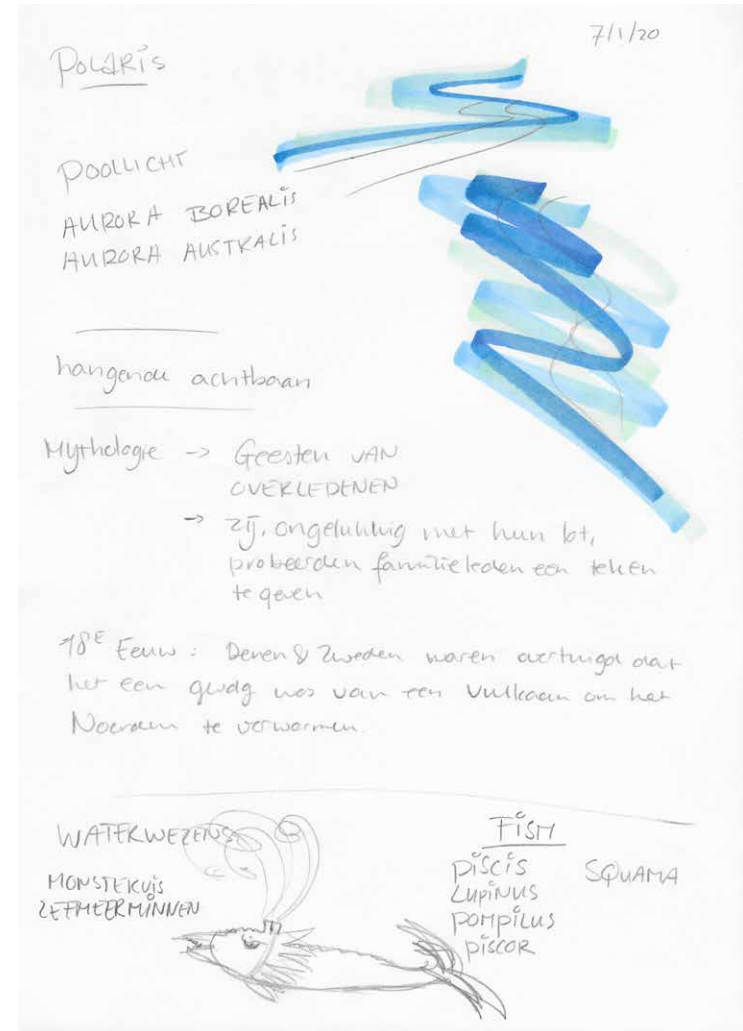 7/1/20
POLARIS
POOLLICHT
AURORA BOREALIS
AURORA AUSTRALIS
hangende achtbaan
Mythologie -> Geesten VAN
OVERLEDENEN
-> zij, ongelukkig met hun lot,
probeerden familieleden een teken
te geven
18E Eeuw : Denen & Zweden waren overtuigd dat
het een was van een Vulkaan om het
Noorden te verwarmen.
WATERWEZENS
MONSTERVIS
ZEEMEERMINNEN
FISH
PISCIS
SQUAMA
LUPINUS
POMPILUS
PISCOR